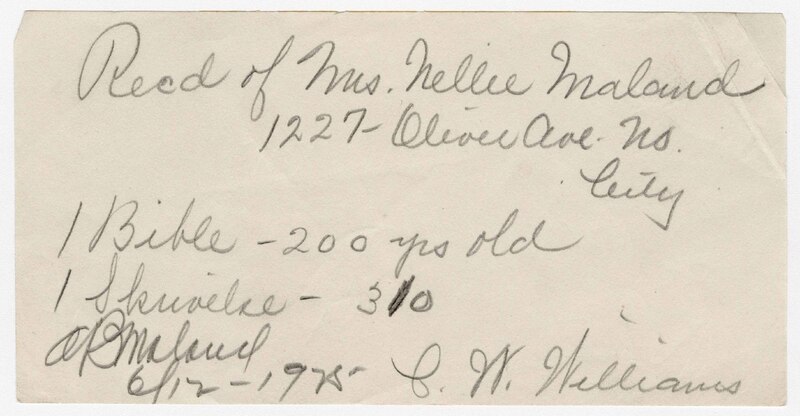 Recd of Mrs. Nellie Maland
1227- Oliver Ave. No.
City
1 Bible - 200 yrs old
1 Skrivelse - 310
Maland
6/12-1925 C. W. Williams